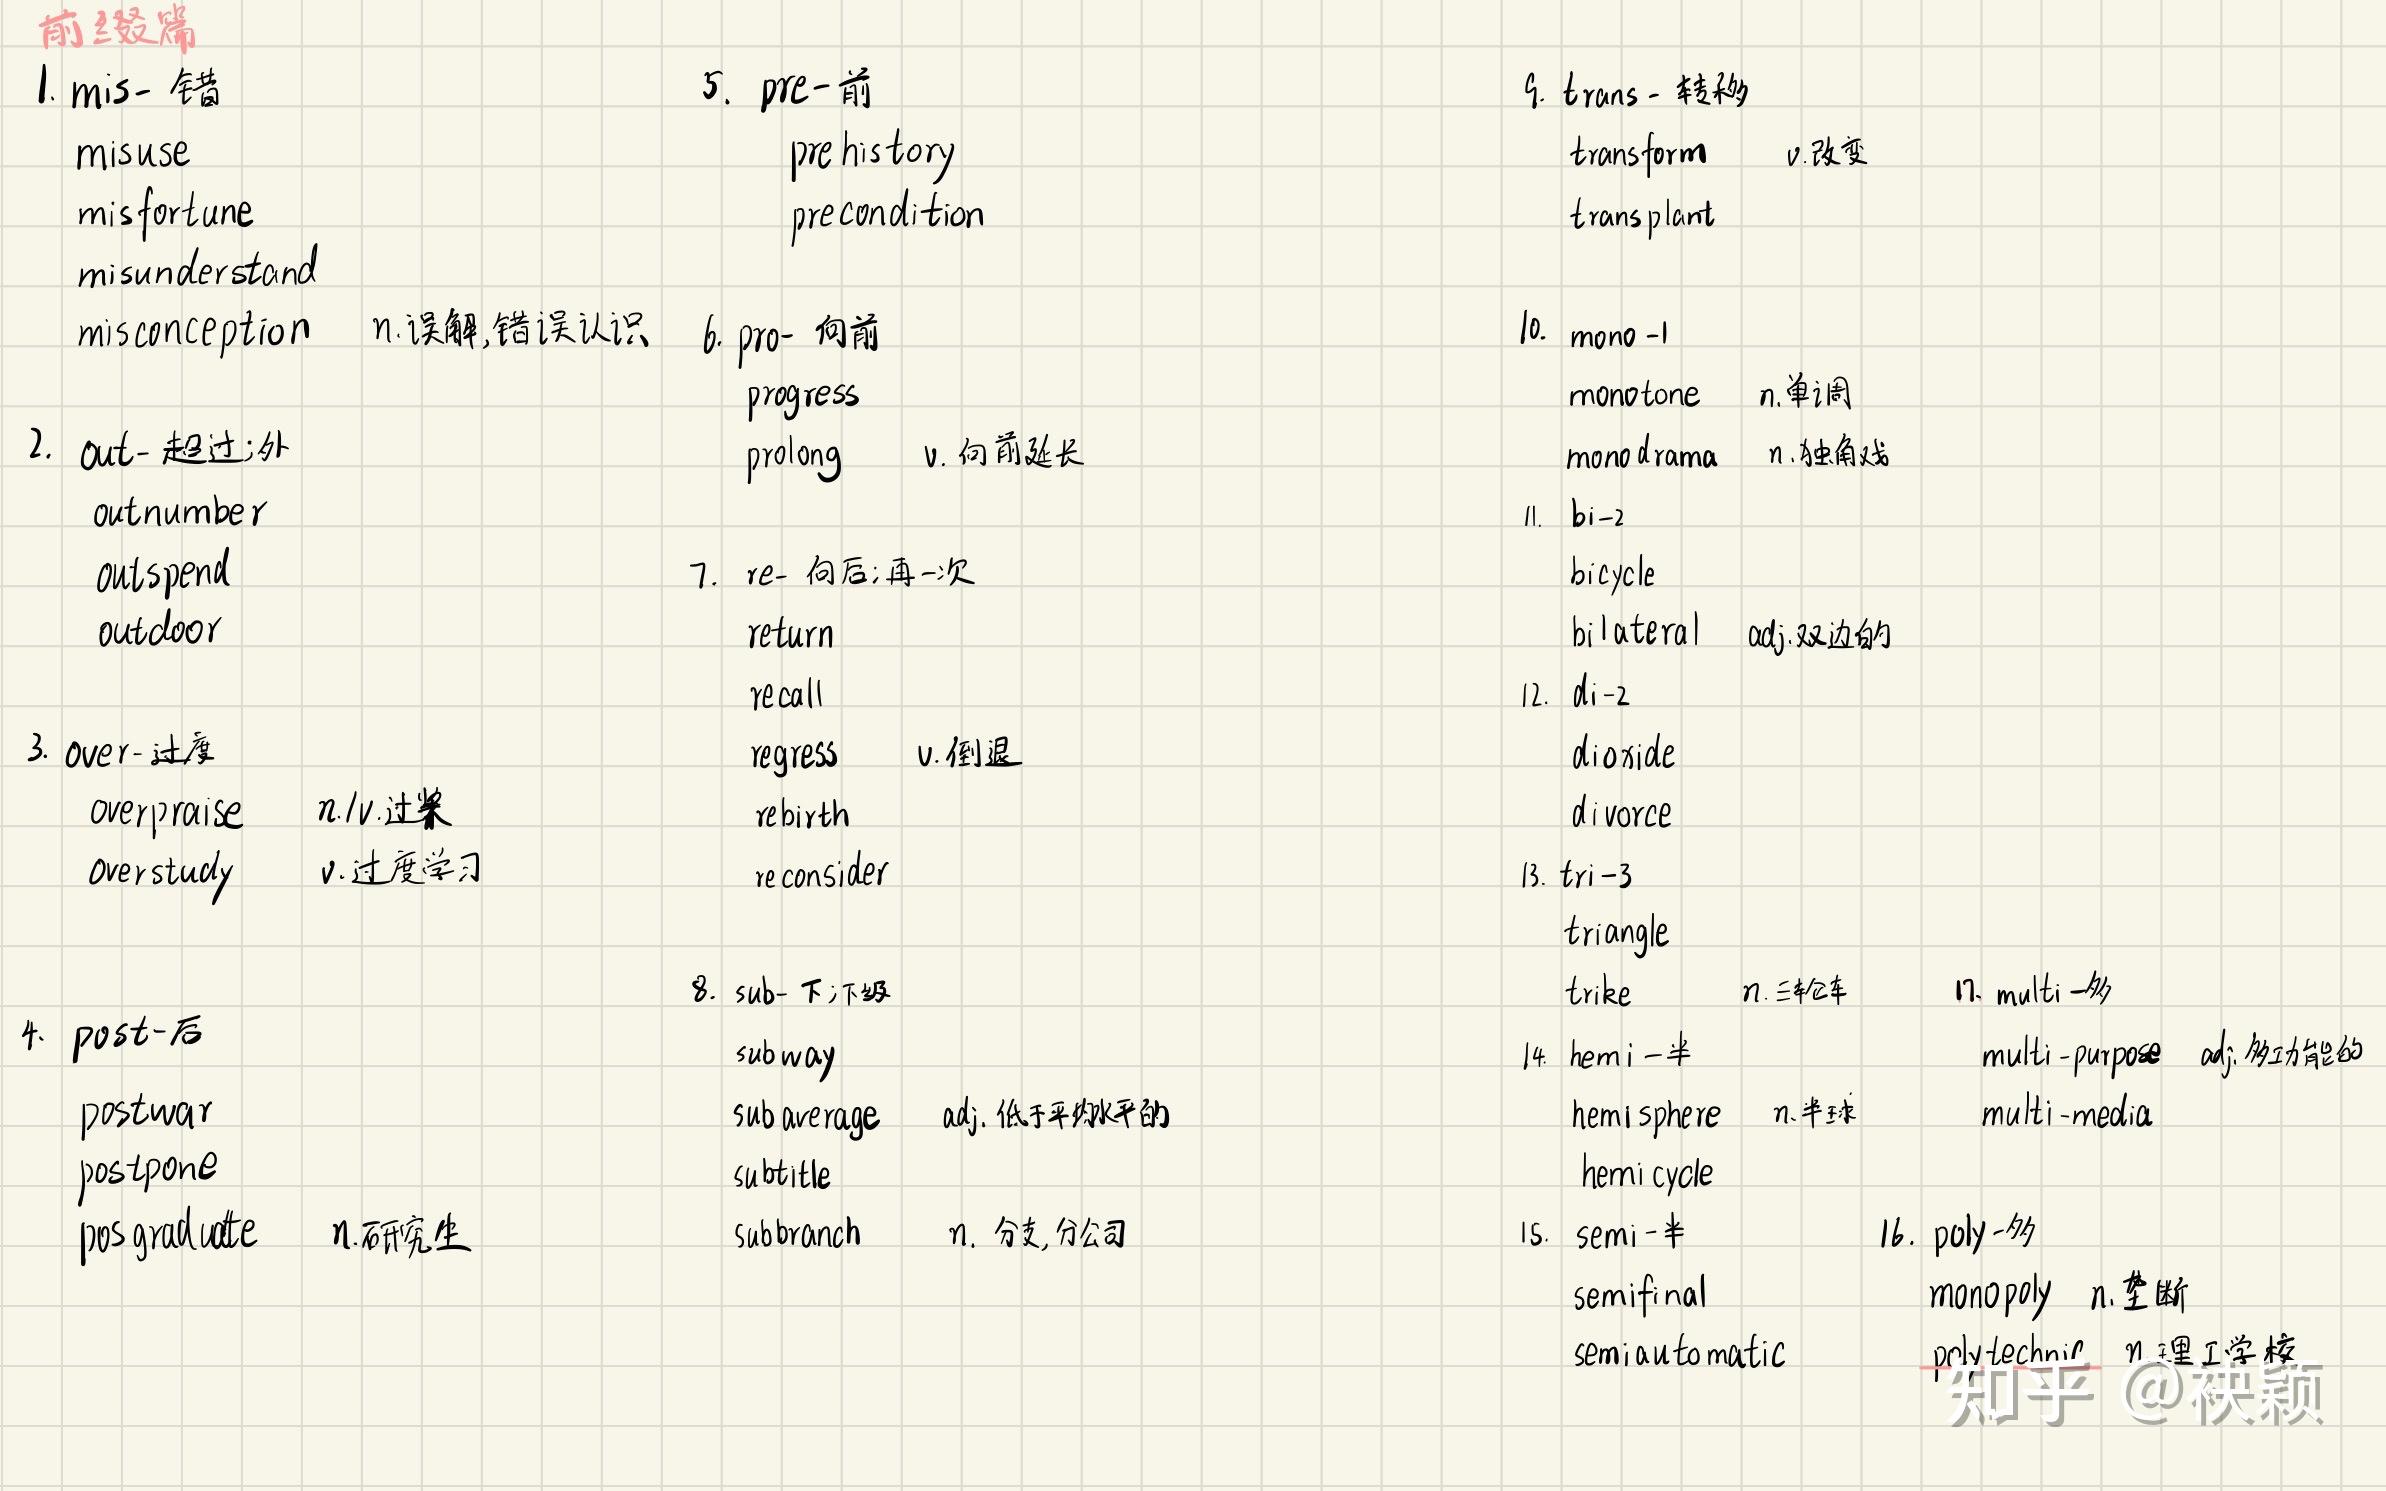 前缀篇
1. mis- 错
misuse
misfortune
misunderstand
misconception n.误解,错误认识
2. out- 超过;外
outnumber
outspend
outdoor
3. over- 过度
overpraise n./v.过奖
overstudy v.过度学习
4. post-后
postwar
postpone
posgraduate n.研究生
5. pre-前
prehistory
precondition
6. pro- 向前
progress
prolong v. 向前延长
7. re- 向后;再一次
return
recall
regress v.倒退
rebirth
reconsider
8. sub- 下;下级
subway
subaverage adj. 低于平均水平的
subtitle
subbranch n. 分支,分公司
9. trans- 转移
transform v.改变
transplant
10. mono-1
monotone n.单调
monodrama n.独角戏
11. bi-2
bicycle
bilateral adj.双边的
12. di-2
dioxide
divorce
13. tri-3
triangle
trike n.三轮车
14. hemi-半
hemisphere n.半球
hemicycle
15. semi-半
semifinal
semiautomatic
17. multi-多
multi-purpose adj.多功能的
multi-media
16. poly-多
monopoly n.垄断
polytechnic n.理工学校
知乎 @秧颖